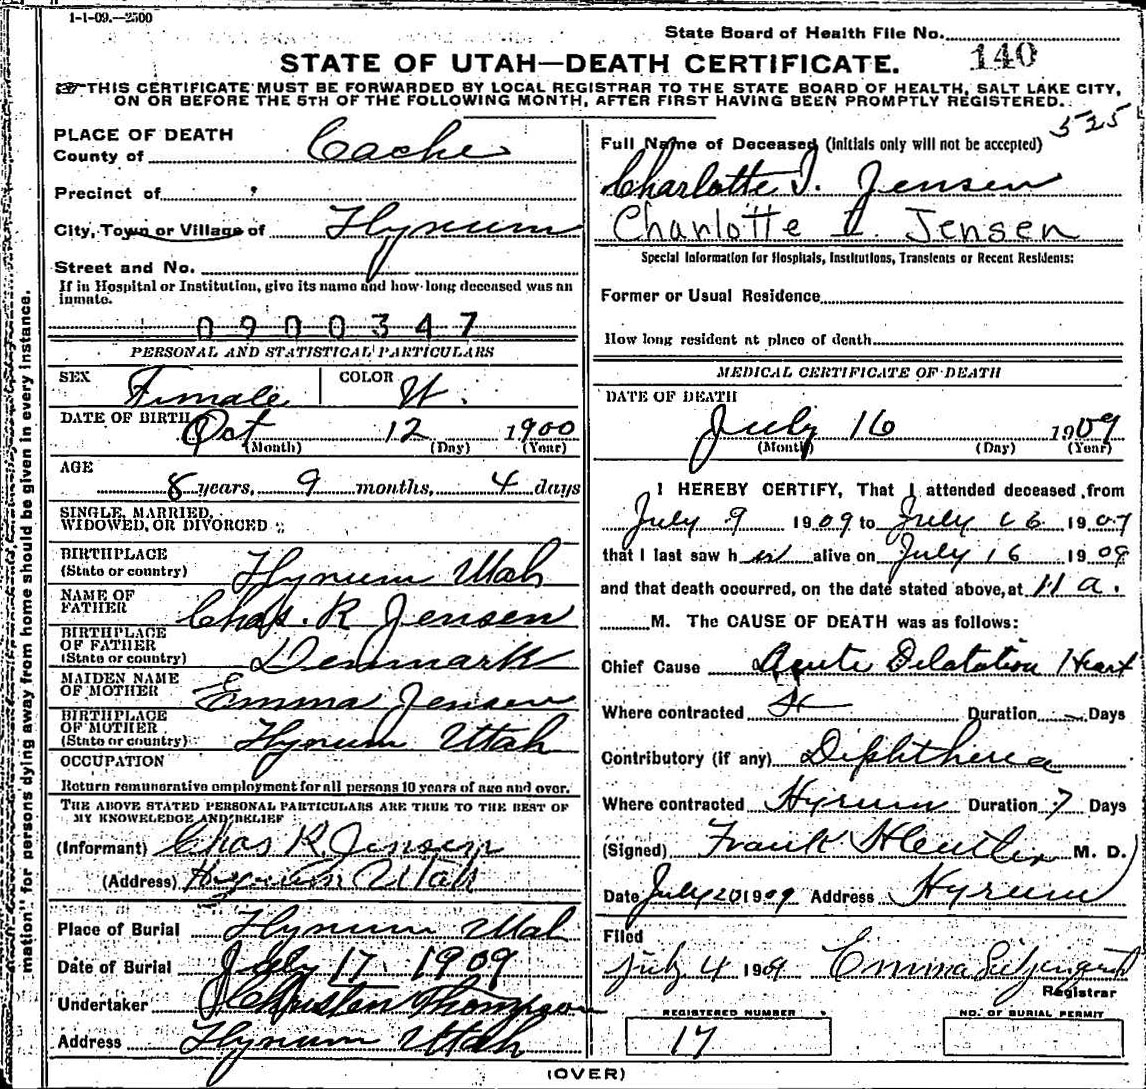 1-1-09.—2500
State Board of Health File No. 140
STATE OF UTAH—DEATH CERTIFICATE.
THIS CERTIFICATE MUST BE FORWARDED BY LOCAL REGISTRAR TO THE STATE BOARD OF HEALTH, SALT LAKE CITY,
ON OR BEFORE THE 5TH OF THE FOLLOWING MONTH, AFTER FIRST HAVING BEEN PROMPTLY REGISTERED.
525
mation" for persons dying away from home should be given in every instance.
PLACE OF DEATH
County of Cache
Precinct of
City, Town or Village of Hyrum
Street and No.
If in Hospital or Institution, give its name and how long deceased was an
inmate.
0900347
PERSONAL AND STATISTICAL PARTICULARS
SEX Female COLOR W.
DATE OF BIRTH Oct 12 1900
(Month) (Day) (Year)
AGE
8 years, 9 months, 4 days
SINGLE, MARRIED,
WIDOWED, OR DIVORCED
BIRTHPLACE
(State or country) Hyrum Utah
NAME OF
FATHER Chas. R Jensen
BIRTHPLACE
OF FATHER
(State or country) Denmark
MAIDEN NAME
OF MOTHER Emma Jensen
BIRTHPLACE
OF MOTHER
(State or country) Hyrum Utah
OCCUPATION
Return remunerative employment for all persons 10 years of age and over.
THE ABOVE STATED PERSONAL PARTICULARS ARE TRUE TO THE BEST OF
MY KNOWLEDGE AND BELIEF
(Informant) Chas R. Jensen
(Address) Hyrum Utah
Place of Burial Hyrum Utah
Date of Burial July 17. 1909
Undertaker Christen Thompson
Address Hyrum Utah
Full Name of Deceased (initials only will not be accepted)
Charlotte I. Jensen
Charlotte I. Jensen
Special Information for Hospitals, Institutions, Transients or Recent Residents:
Former or Usual Residence
How long resident at place of death
MEDICAL CERTIFICATE OF DEATH
DATE OF DEATH
July 16 1909
(Month) (Day) (Year)
I HEREBY CERTIFY, That I attended deceased from
July 9 1909 to July 16 1909
that I last saw her alive on July 16 1909
and that death occurred, on the date stated above, at 11 a.
M. The CAUSE OF DEATH was as follows:
Chief Cause Acute Dilatation Heart
Where contracted Duration Days
Contributory (if any) Diphtheria
Where contracted Hyrum Duration 7 Days
(Signed) Frank M. D.
Date July 20 1909 Address Hyrum
Filed
July 4 1909 Emma
Registrar
REGISTERED NUMBER
17
NO. OF BURIAL PERMIT
(OVER)